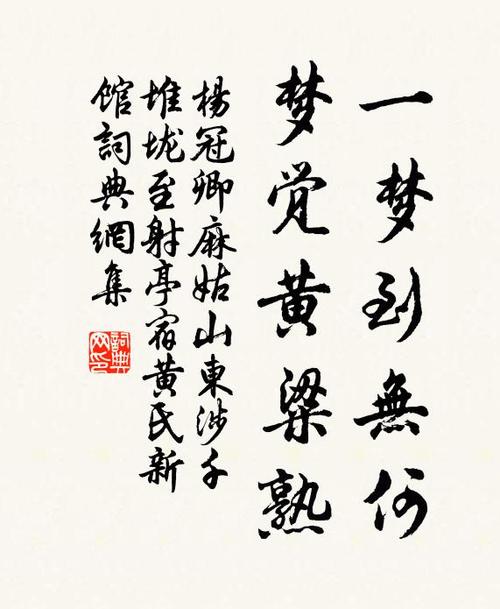 一梦到無何
梦觉黄粱熟
楊冠卿麻姑山東涉千
堆垅至射亭宿黄氏新
馆詞典網集
詞典
网印